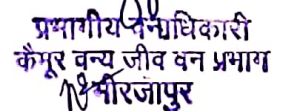 प्रभागीय वनाधिकारी
कैमूर वन्य जीव वन प्रभाग
मीरजापुर